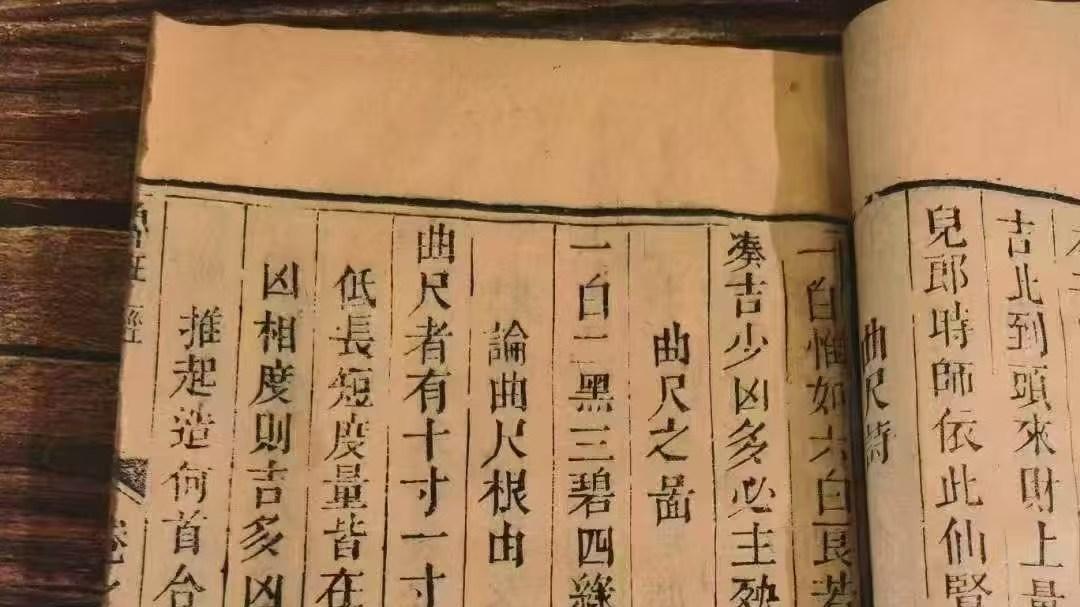 吉北到頭來財上
兒郎時師依此仙賢
曲尺詩
一白惟如六白艮若
凑吉少凶多必主
曲尺之啚
一白二黑三碧四綠
論曲尺根由
曲尺者有十寸一寸
低長短度量皆在
凶相度則吉多凶
推起造何首合
魯班經
卷